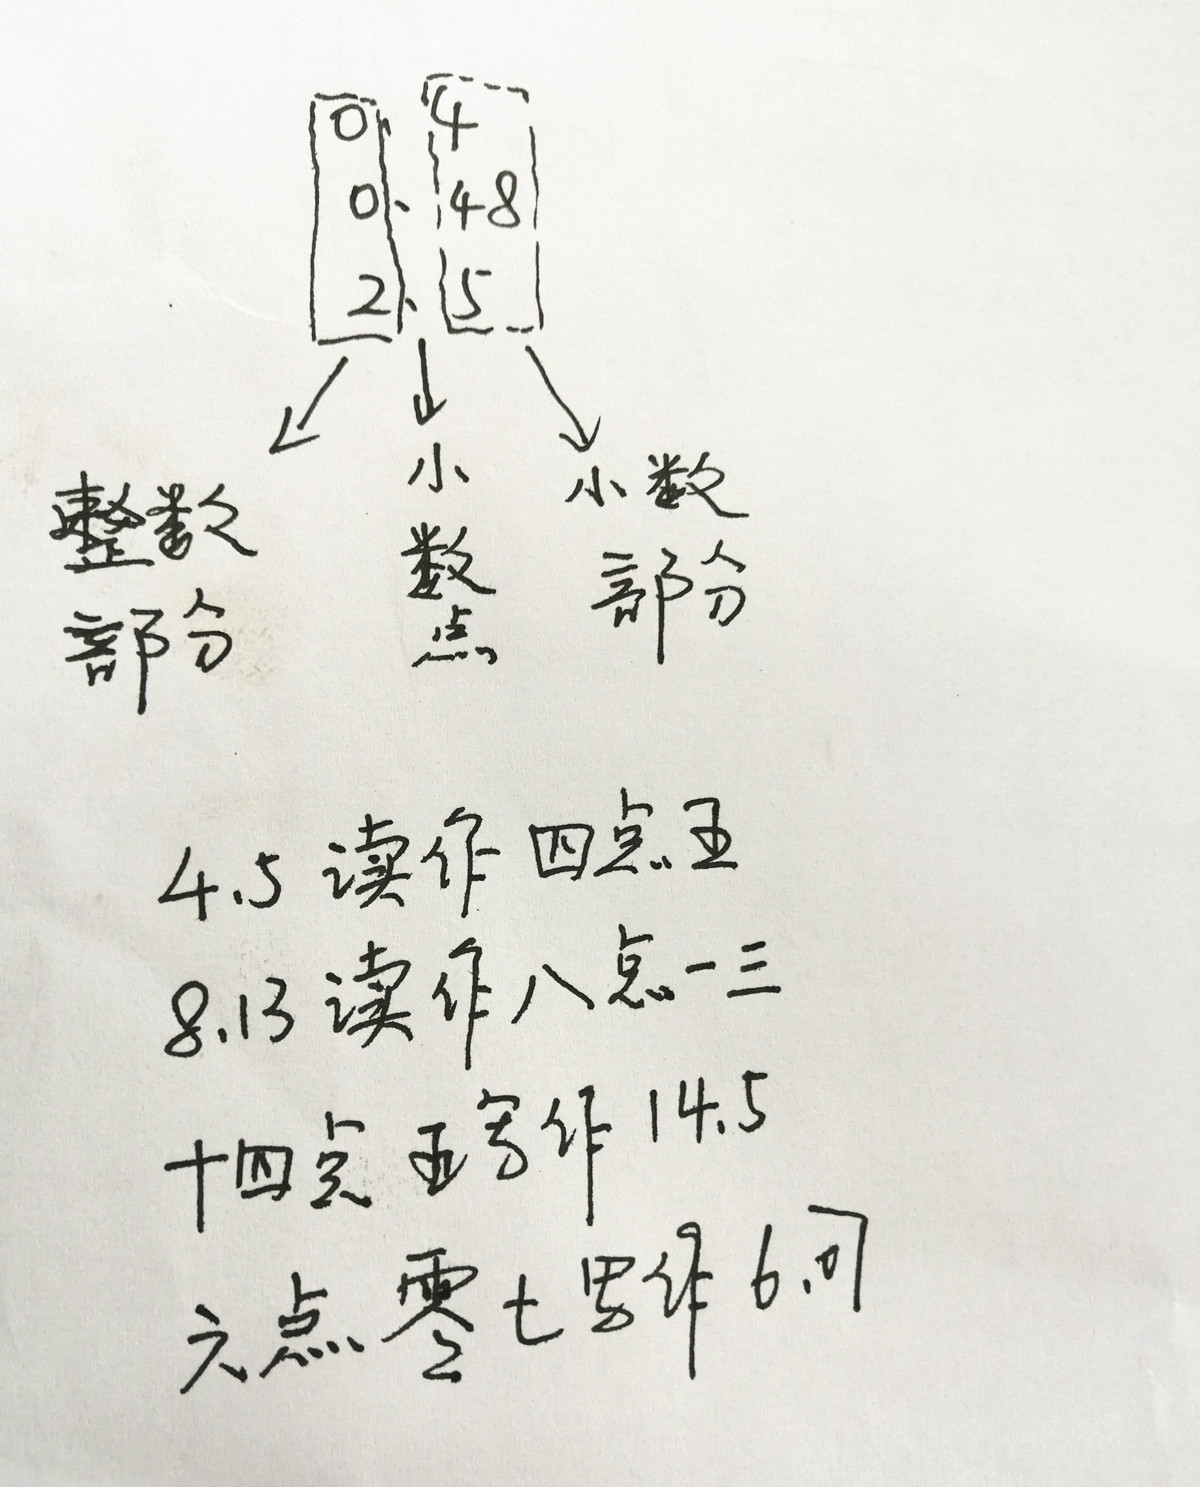 0.4
0.48
2.5
整数部分
小数点
小数部分
4.5 读作 四点五
8.13 读作 八点一三
十四点五写作 14.5
六点零七写作 6.07